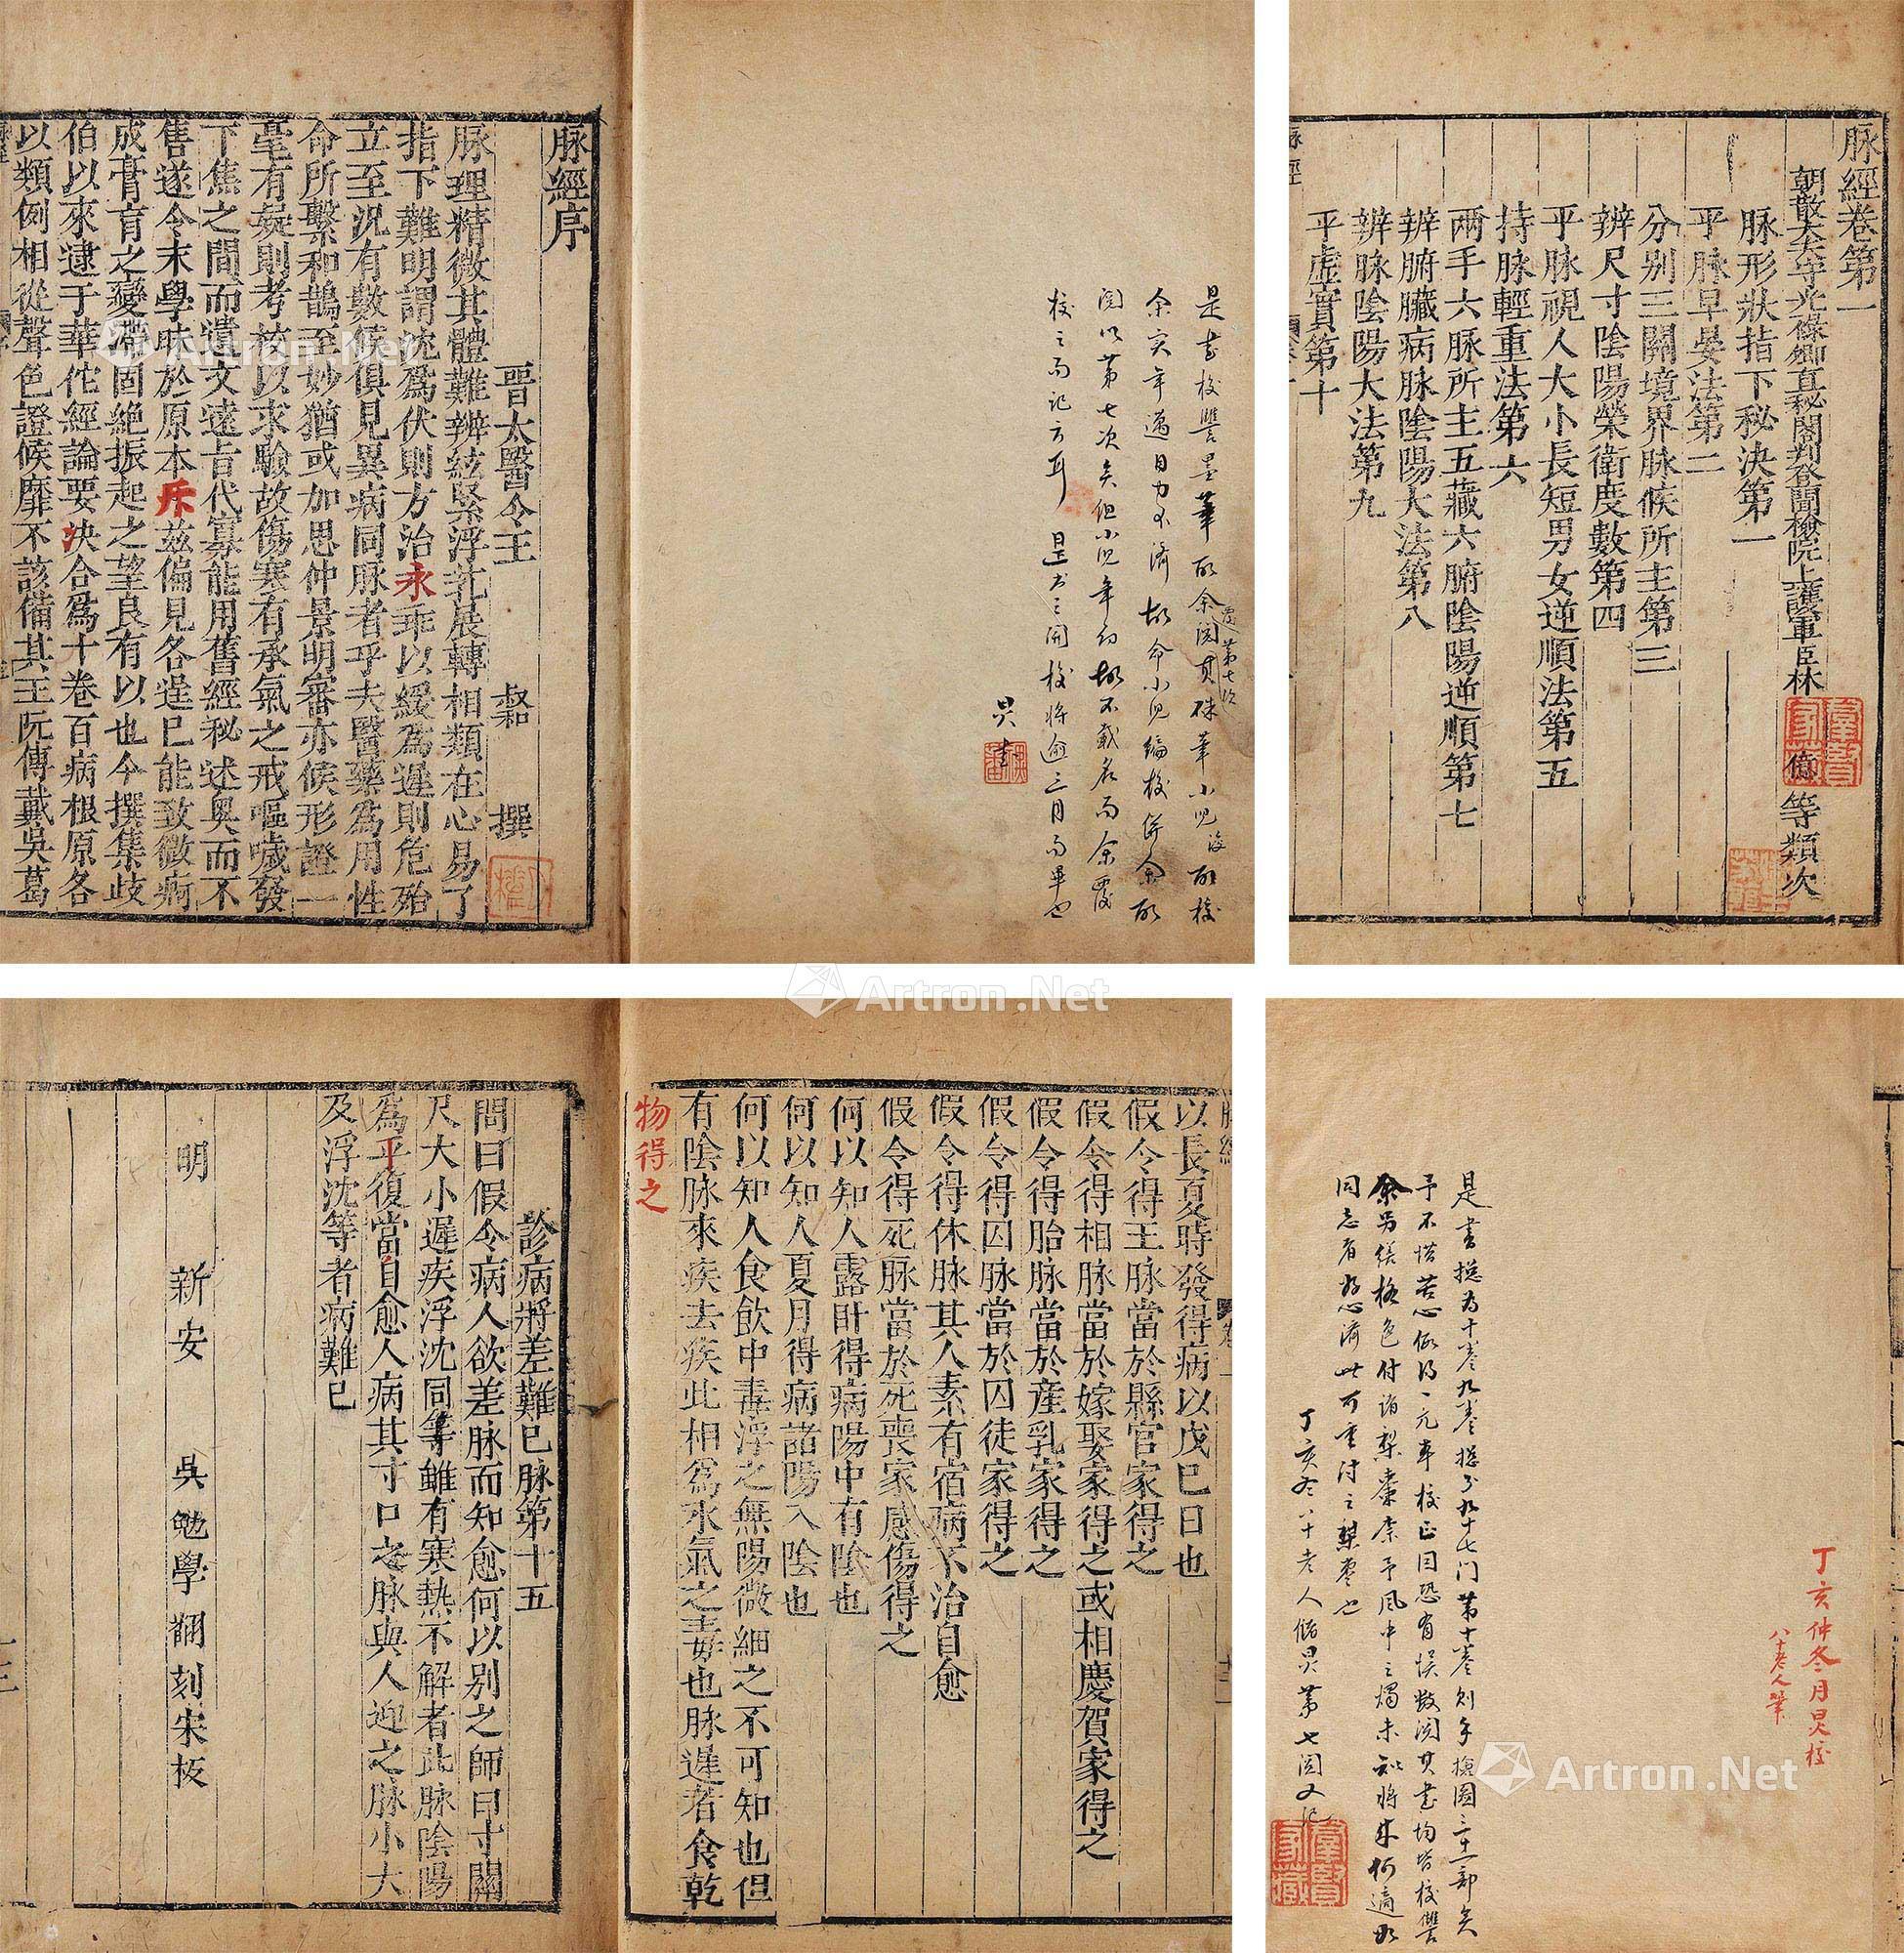 脉經序
晉太醫令王　叔和　撰
脉理精微其體難辨絃緊浮芤展轉相類在心易了
指下難明謂沈爲伏則方治永乖以緩爲遲則危殆
立至況有數候俱見異病同脉者乎夫醫藥爲用性
命所繫和鵲至妙猶或加思仲景明審亦候形證一
毫有疑則考校以求驗故傷寒有承氣之戒嘔噦發
下焦之間而遺文遠旨代寡能用舊經秘述奥而不
售遂令末學昧於原本斥兹偏見各逞已能致微痾
成膏肓之變滯固絶振起之望良有以也今撰集歧
伯以來逮于華佗經論要決合爲十卷百病根原各
以類例相從聲色證候靡不該備其王阮傅戴吳葛
是書校讐墨筆
余實年邁目力不濟故命小兒編校併余所
閱以第七次矣但小兒年幼故不載名而余覆
校之而記言耳 是書之開校將逾三月而畢也
脉經卷第一
朝散大夫守光祿卿直秘閣判登聞檢院上護軍臣林億等類次
脉形狀指下秘決第一
平脉早晏法第二
分别三關境界脉候所主第三
辨尺寸陰陽榮衛度數第四
平脉視人大小長短男女逆順法第五
持脉輕重法第六
兩手六脉所主五藏六腑陰陽逆順第七
辨腑臟病脉陰陽大法第八
辨脉陰陽大法第九
平虛實第十
脉經
以長夏時發得病以戊巳日也
假令得王脉當於縣官家得之
假令得相脉當於嫁娶家得之或相慶賀家得之
假令得胎脉當於産乳家得之
假令得囚脉當於囚徒家得之
假令得休脉其人素有宿病不治自愈
假令得死脉當於死喪家感傷得之
何以知人露臥得病陽中有陰也
何以知人夏月得病諸陽入陰也
何以知人食飲中毒浮之無陽微細之不可知也但
有陰脉來疾去疾此相爲水氣之毒也脉遲者食乾
物得之
診病將差難已脉第十五
問曰假令病人欲差脉而知愈何以别之師曰寸關
尺大小遲疾浮沈同等雖有寒熱不解者此脉陰陽
爲平復當自愈人病其寸口之脉與人迎之脉小大
及浮沈等者病難已
明　新安　吳勉學翻刻宋板
丁亥仲冬月昃校
八十老人筆
是書總為十卷九卷總分九十七門第十卷則手檢圖三十一部矣
予不惜苦心
同志者
丁亥冬八十老人